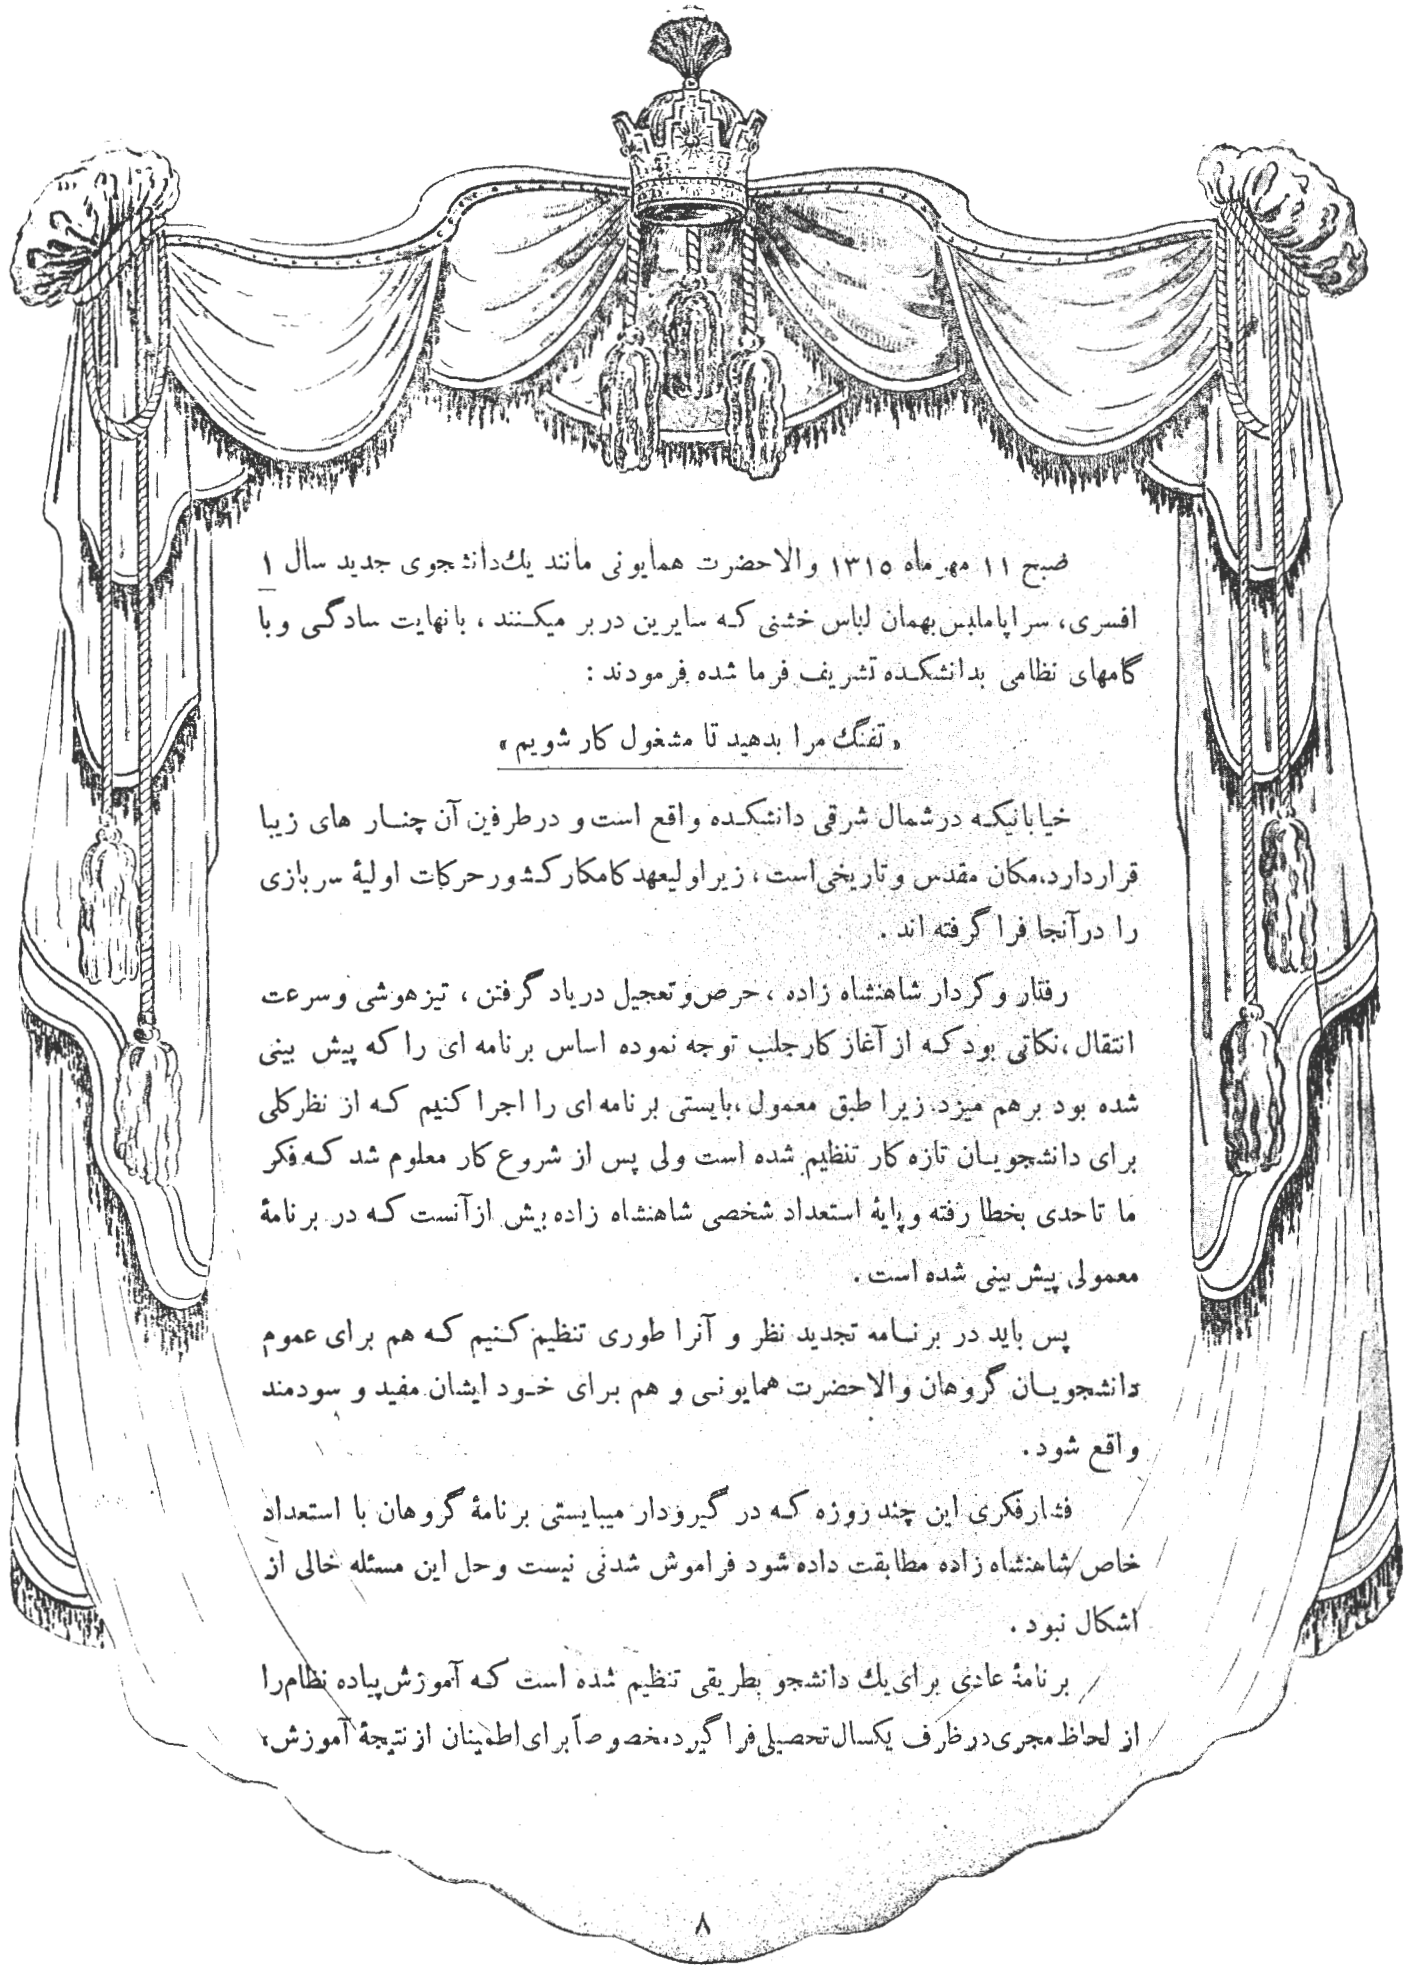 صبح ۱۱ مهرماه ۱۳۱۵ والاحضرت همایونی مانند یك دانشجوی جدید سال ۱
افسری، سراپا ملبس بهمان لباس خشنی که سایرین دربر میکنند ، با نهایت سادگی و با
گامهای نظامی بدانشکده تشریف فرما شده فرمودند :
« تفنگ مرا بدهید تا مشغول کار شویم »
خیابانیکه در شمال شرقی دانشکده واقع است و درطرفین آن چنار های زیبا
قراردارد،مکان مقدس و تاریخی است ، زیرا ولیعهد کامکار کشور حرکات اولیهٔ سربازی
را درآنجا فرا گرفته اند .
رفتار و کردار شاهنشاه زاده ، حرص و تعجیل در یاد گرفتن ، تیزهوشی و سرعت
انتقال ،نکاتی بود که از آغاز کار جلب توجه نموده اساس برنامه ای را که پیش بینی
شده بود برهم میزد. زیرا طبق معمول ،بایستی برنامه ای را اجرا کنیم که از نظر کلی
برای دانشجویان تازه کار تنظیم شده است ولی پس از شروع کار معلوم شد که فکر
ما تاحدی بخطا رفته و پایهٔ استعداد شخصی شاهنشاه زاده بیش از آنست که در برنامهٔ
معمولی پیش بینی شده است .
پس باید در برنامه تجدید نظر و آنرا طوری تنظیم کنیم که هم برای عموم
دانشجویان گروهان والاحضرت همایونی و هم برای خود ایشان مفید و سودمند
واقع شود .
فشارفکری این چند روزه که در گیرودار میبایستی برنامهٔ گروهان با استعداد
خاص شاهنشاه زاده مطابقت داده شود فراموش شدنی نیست و حل این مسئله خالی از
اشکال نبود .
برنامهٔ عادی برای یك دانشجو بطریقی تنظیم شده است که آموزش پیاده نظام را
از لحاظ مجری در ظرف یکسال تحصیلی فرا گیرد،خصوصاً برای اطمینان از نتیجهٔ آموزش،
۸